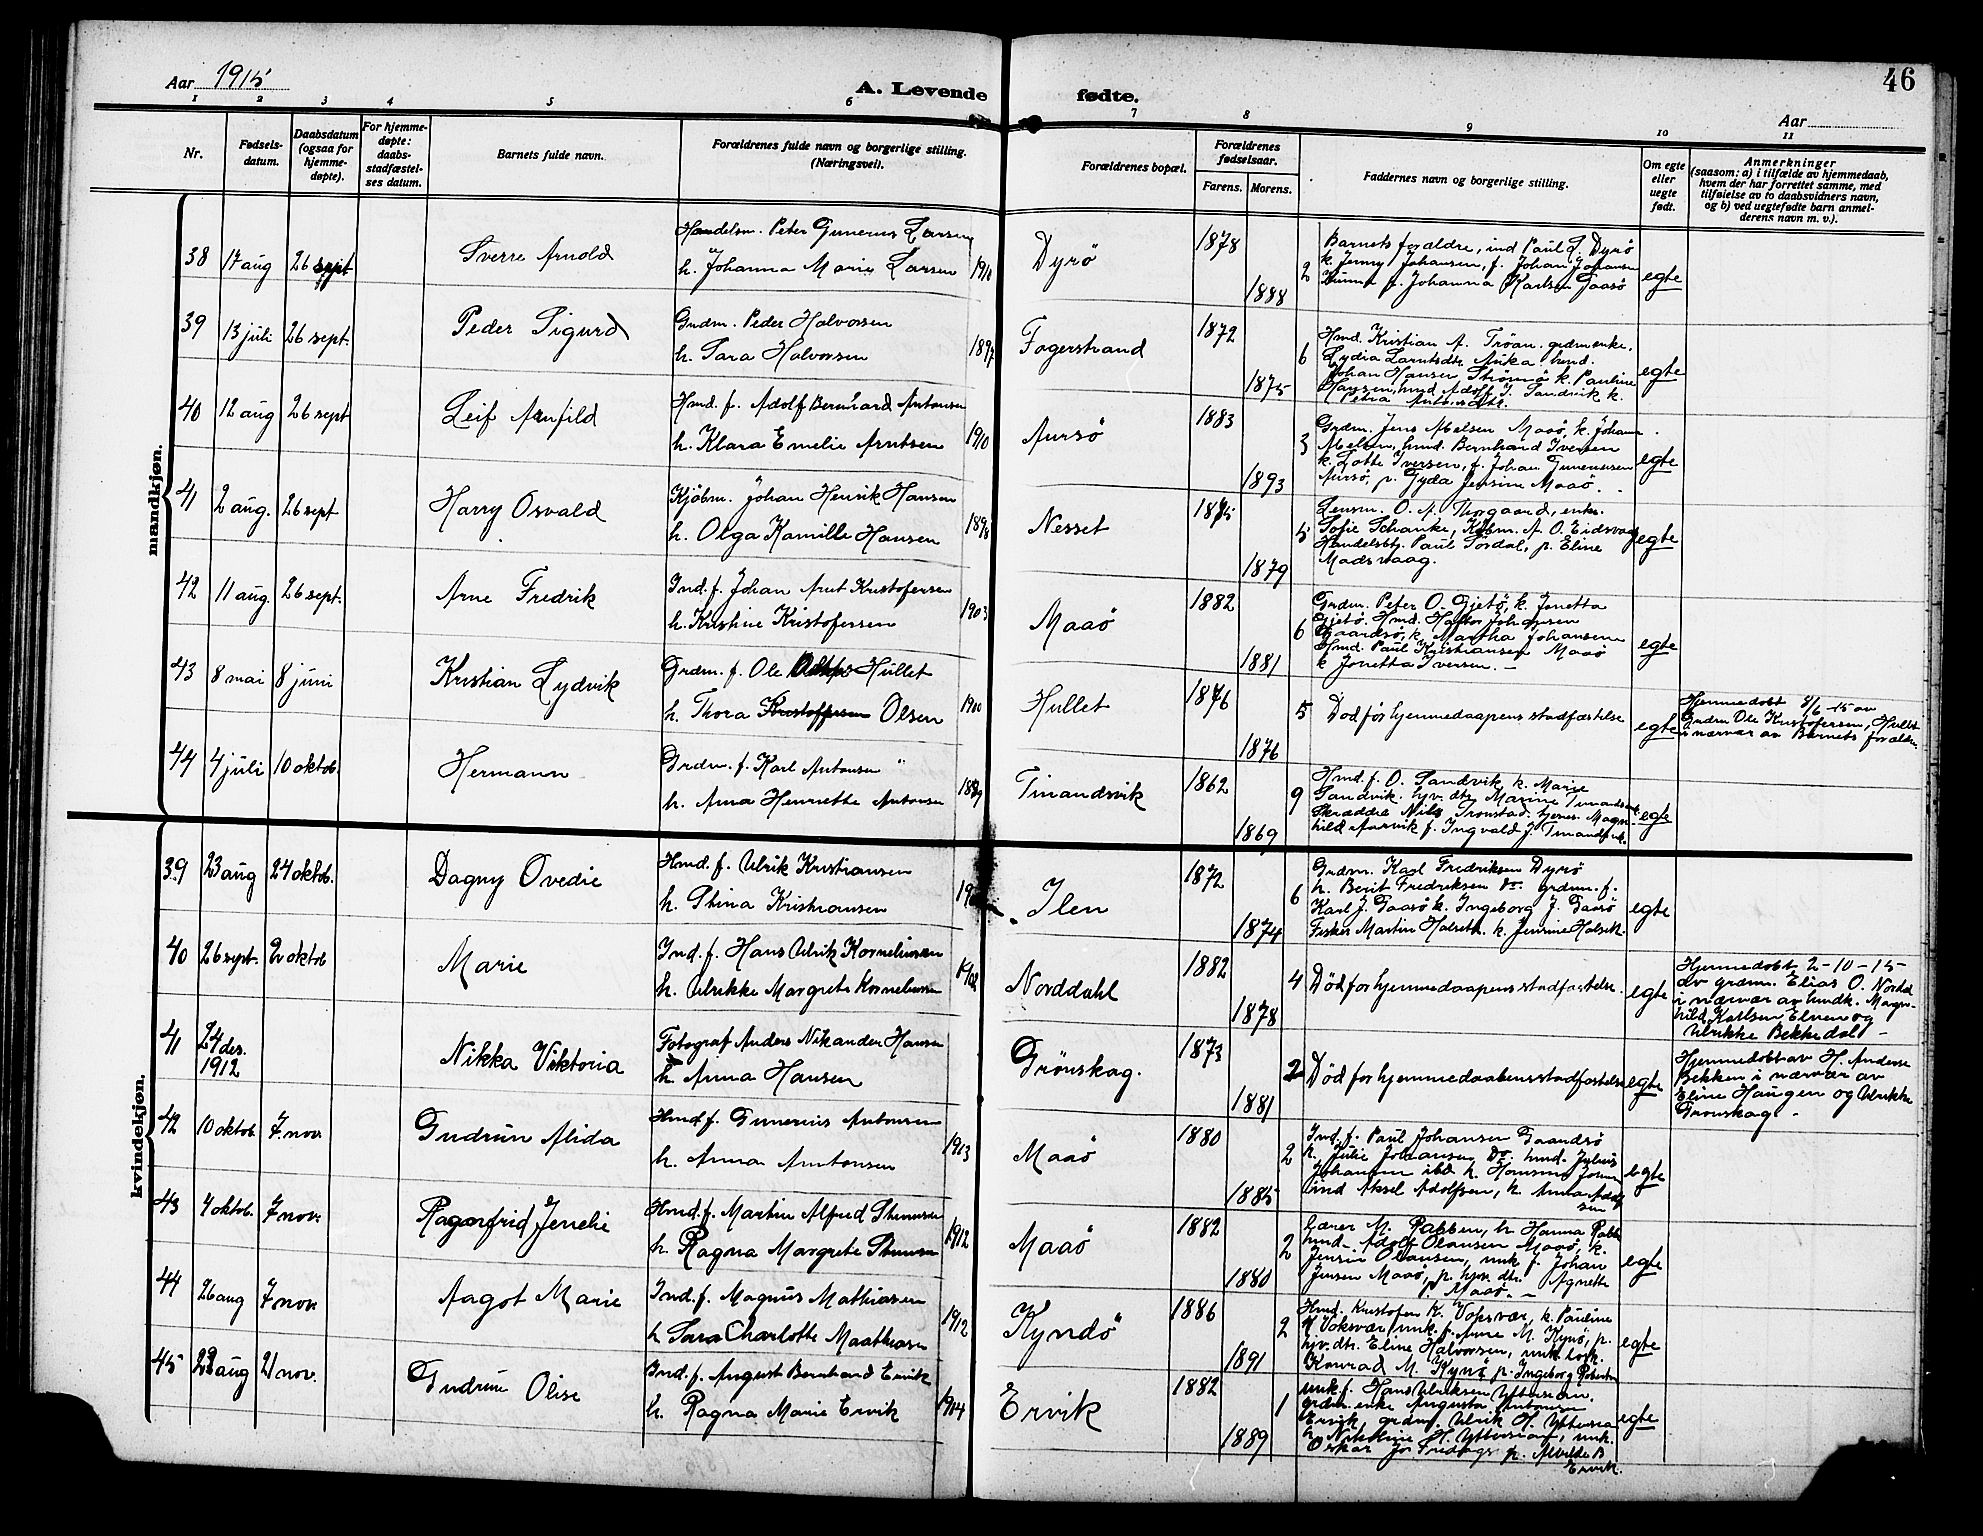 Aar 1915
A. Levende fødte.
46
Aar
1 2 3 4 5 6 7 8 9 10 11
Nr.
Fødsels-
datum.
Daabsdatum
(ogsaa for
hjemme-
døpte).
For hjemme-
døpte:
daabs-
stadfæstel-
ses datum.
Barnets fulde navn.
Forældrenes fulde navn og borgerlige stilling.
(Næringsvei).
Forældrenes bopæl.
Forældrenes
fødselsaar.
Farens. Morens.
Faddernes navn og borgerlige stilling.
Om egte
eller
uegte
født.
Anmerkninger
(saasom: a) i tilfælde av hjemmedaab,
hvem der har forrettet samme, med
tilføielse av to daabsvidners navn,
og b) ved uegtefødte barn anmel-
derens navn m. v.).
mandkjøn.
38 17 aug 26 sept Sverre Arnold
Handelsm. Peter Gunerius Larsen
h. Johanna Marie Larsen 1910
Dyrö 1878 1888 2
Barnets forældre, ind Paul L. Dyrö
k. Jenny Johansen, f. Johan Johansen
p. Johanna Karlsen Gaasö
egte
39 13 juli 26 sept. Peder Sigurd
Grdm. Peder Halvorsen
h. Sara Halvorsen 1897
Fagerstrand 1872 1875 6
Hmd. Kristian A. Tröan. grdm enke.
Lydia Larntsdtr. Auka hmd.
Johan Hansen Strömö k. Pauline
Hansen, hmd Adolf J. Sandvik k.
Petra
egte
40 12 aug 26 sept Leif Arnfild
Hmd. f. Adolf Bernhard Antonsen
h. Klara Emelie Arntsen 1910
Aursö 1883 1893 3
Grdm. Jens Melsen Maaö, k. Johan
Melsen, hmd. Bernhard Iversen
k. Lotte Iversen, f. Johan Gunerius
Aursö, p. Gyda Jensine Maaö.
egte
41 2 aug. 26 sept Harry Osvald
Kjöbm. Johan Henrik Hansen
h. Olga Kamille Hansen 1898
Nesset 1875 1879 5
Lensm. O. A. Thorgaard, enke.
Sofie Schanke, Kjöbm. A. O. Eidsvaag
Handelsbtj. Paul Sördal, p. Eline
Madsvaag.
egte
42 11 aug. 26 sept. Arne Fredrik
Ind. f. Johan Arnt Kristofersen
h. Kristine Kristofersen 1903
Maaö 1882 1881 6
Grdm. Peter O. Gjetö, k. Jonetta
Gjetö. Hmd. Johansen
Gaardsö, k. Martha Johansen
Hmd. Paul Kristiansen Maaö
k Jonetta Iversen. -
egte
43 8 mai 8 juni Kristian Lydvik
Grdm. f. Ole Hullet
h. Thora Kristoffersen Olsen 1900
Hullet 1876 1876 5
Död för hjemmedaapens stadfæstelse
egte
Hjemmedøbt 8/6-15 av
Grdm Ole Kristofersen, Hullet
i nærvær av Barnets forældre.
44 4 juli 10 oktob. Hermann
Grdm. f. Karl Antonsen
h. Anna Henriette Antonsen 1889
Tinandsvik 1862 1869 9
Hmd. f. O. Sandvik, k. Marie
Sandvik. hjv. dtr. Marine
Skrædder Nils Tronstad, hjvs. Magn-
hild Aurvik f. Ingvald J
egte
kvindekjøn.
39 23 aug 24 oktob. Dagny Ovedie
Hmd. f. Ulrik Kristiansen
h. Stina Kristiansen
Ilen 1872 1874 6
Grdm. Karl Fredriksen Dyrö
h. Berit Fredriksen do. grdm. f.
Karl J. Gaasö k. Ingeborg J. Gaasö
Fisker Martin Holseth. k. Jensine Holseth.
egte
40 26 sept. 2 oktob Marie
Ind. f. Hans Ulrik Korneliussen
h. Ulrikke Margrete Korneliussen
Norddahl 1882 1878 4
Död for hjemmedaapens stadfæstelse.
egte
Hjemmedøbt 2-10-15
av grdm. Elias O. Nordd
i nærvær av hmdk. Magn-
hild Karlsen Elven og
Ulrikke Bekkedal -
41 24 des. 1912 Nikka Viktoria
Fotograf Anders Nikander Hansen
h Anna Hansen
Grönskag. 1873 1881 2
Död for hjemmedaabens stadfæstelse
egte
Hjemmedøbt av H. Anderse
Bekken i nærvær av
Eline Haugen og Ulrikke
Grönskag -
42 10 oktob. 7 nov. Gudrun Alida
Hmd f. Gunerius Antonsen
h. Anna Antonsen 1913
Maaö 1880 1885 2
Ind. f. Paul Johansen Gaardsö
k. Julie Johansen Do. hmd. Julius
Johansen ibd k. Hansine Johan
ind Aksel Adolfsen, k. Anna Adolf
sen
egte
43 4 oktob. 7 nov. Ragnfrid Jenelie
Hmd. f. Martin Alfred Stensen
h. Ragna Margrete Stensen 1912
Maaö 1882 1880 2
Lærer M. Rabben, k. Hanna Rabb
hmd. Adolf Olausen Maaö, k.
Jensin Olausen, unk f. Johan
Jensen Maaö, p. hjv. dtr. Agnethe
Maaö. -
egte
44 26 aug 7 nov. Aagot Marie
Ind. f. Magnus Mathiasen
h Sara Charlotte Maathiasen 1912
Kyndö 1886 1891 2
Hmd. Kristofer K. Vaksvær, k. Pauline
Voksvær unk. f. Arne M. Kynö, p.
hjv. dtr. Eline Halvorsen, unk
Konrad M. Kynö p. Ingeborg Roberts
egte
45 22 aug 21 nov. Gudrun Olise
Ind. f. August Bernhard Ervik
h. Ragna Marie Ervik 1914
Ervik 1882 1889 1
unk f. Hans Ulriksen Ytterian.
grdm. enke Augusta Antonsen
Ervik, grdm. Ulrik H. Ytterian
k. Nikoline H. Ytterian, unk.
Oskar Fredags p. Alvilde B
Ervik.
egte